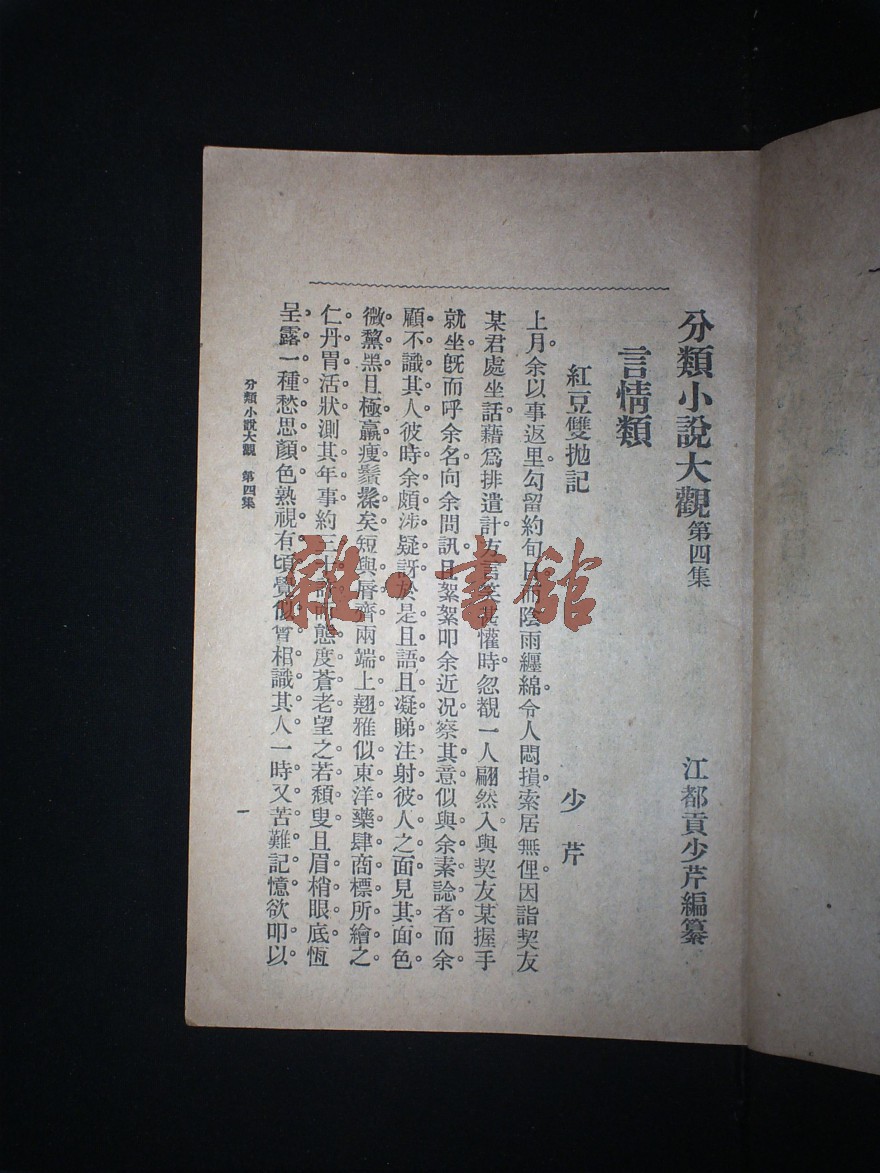 分類小說大觀第四集 江都貢少芹編纂
言情類
紅豆雙拋記 少芹
上月余以事返里勾留約旬日而陰雨纏綿令人悶損索居無俚因詣契友
某君處坐話藉爲排遣計方言笑甚懽時忽覩一人翩然入與契友某握手
就坐旣而呼余名向余問訊且絮絮叩余近况察其意似與余素諗者而余
顧不識其人彼時余頗涉疑訝於是且語且凝睇注射彼人之面見其面色
微黧黑且極羸瘦鬚髹矣短與脣齊兩端上翹雅似東洋藥肆商標所繪之
仁丹胃活狀測其年事約三十 態度蒼老望之若頹叟且眉梢眼底恆
呈露一種愁思顏色熟視有頃覺似曾相識其人一時又苦難記憶欲叩以
分類小說大觀 第四集
一
雜·書館